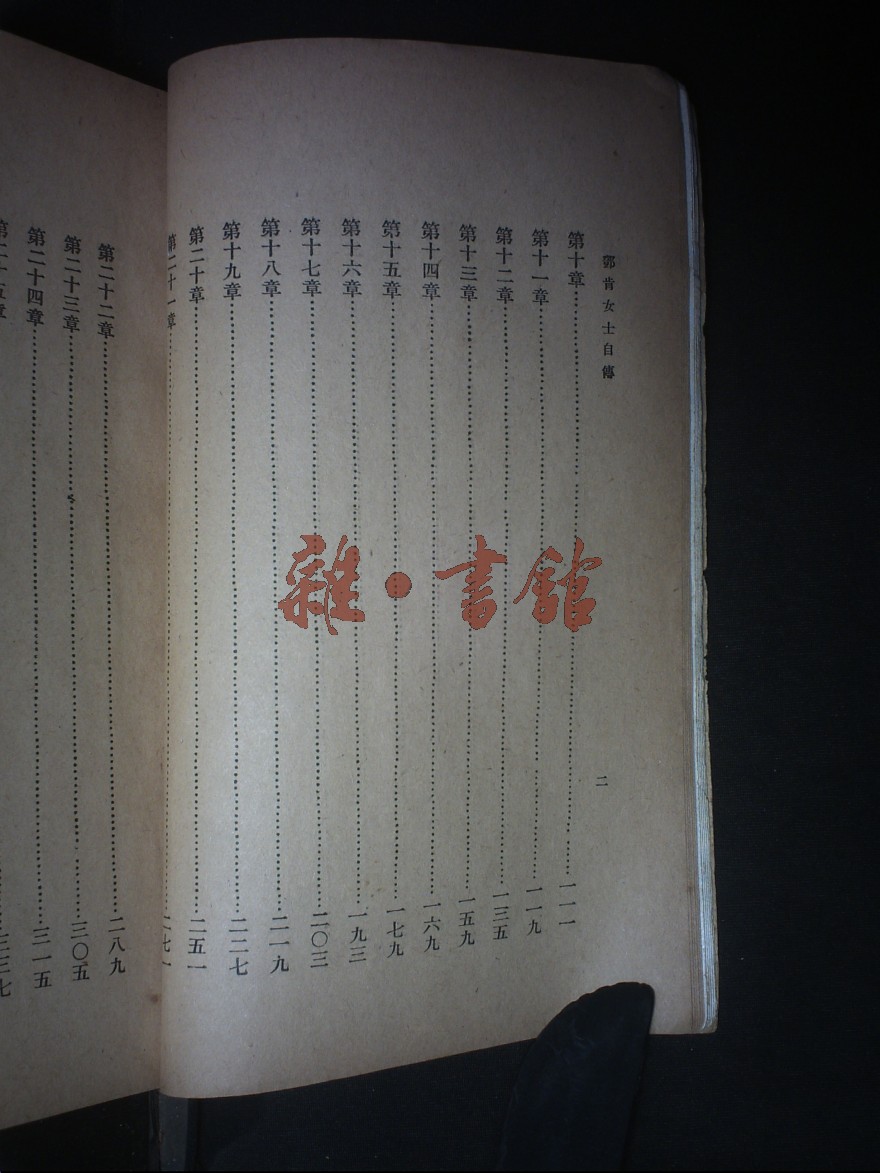 鄧肯女士自傳
二
第十章一一一
第十一章一一九
第十二章一三五
第十三章一五九
第十四章一六九
第十五章一七九
第十六章一九三
第十七章二〇三
第十八章二一九
第十九章二二七
第二十章二五一
第二十一章二七一
第二十二章二八九
第二十三章三〇五
第二十四章三一五
第二十五章三三七
雜·書館